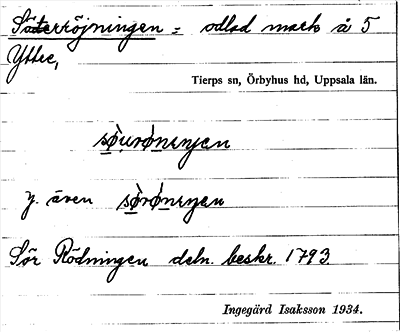 Söderröjningen = odlad mark å 5
Yttre,
Tierps sn, Örbyhus hd, Uppsala län.
y. även
Sör Rödningen deln. beskr. 1793
Ingegärd Isaksson 1934.